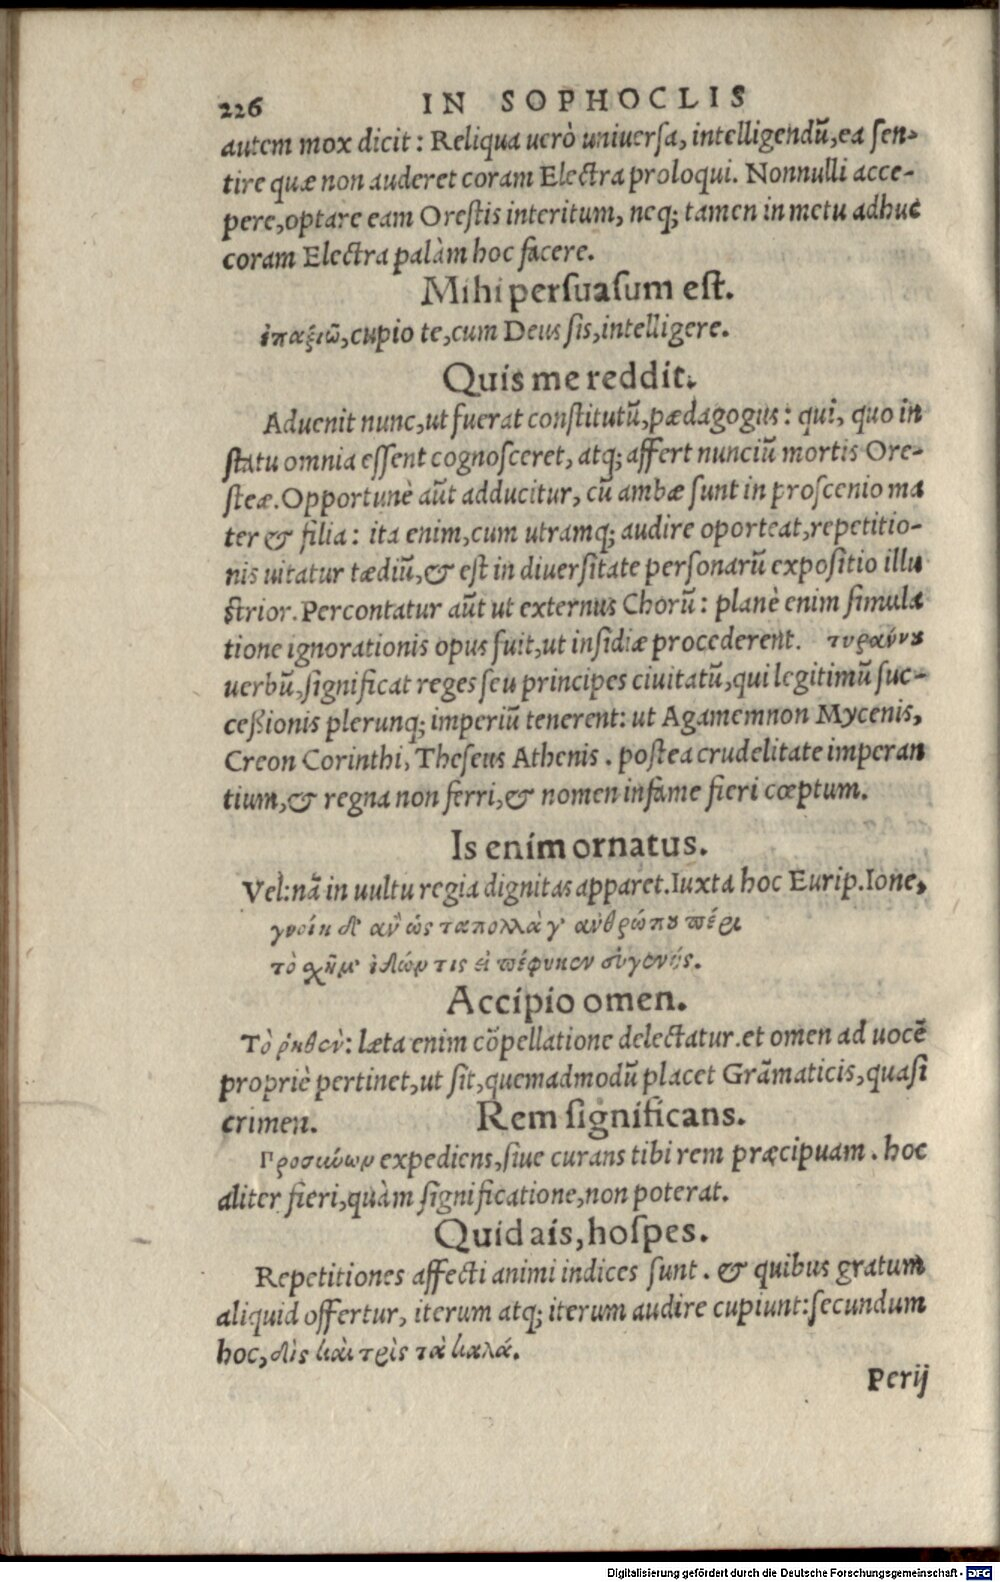 226 IN SOPHOCLIS
autem mox dicit: Reliqua uerò uniuersa, intelligendũ, ea sen-
tire quæ non auderet coram Electra proloqui. Nonnulli acce-
pere, optare eam Orestis interitum, neq; tamen in metu adhuc
coram Electra palàm hoc facere.
Mihi persuasum est.
ἐπαξιῶ, cupio te, cum Deus sis, intelligere.
Quis me reddit.
Aduenit nunc, ut fuerat constitutũ, pædagogus: qui, quo in
statu omnia essent cognosceret, atq; affert nunciũ mortis Ore-
steæ. Opportunè aũt adducitur, cũ ambæ sunt in proscenio ma
ter & filia: ita enim, cum utramq; audire oporteat, repetitio-
nis uitatur tædiũ, & est in diuersitate personarũ expositio illu
strior. Percontatur aũt ut externus Chorũ: planè enim simula
tione ignorationis opus fuit, ut insidiæ procederent. τυραύνου
uerbũ, significat reges seu principes ciuitatũ, qui legitimũ suc-
cessionis plerunq; imperiũ tenerent: ut Agamemnon Mycenis,
Creon Corinthi, Theseus Athenis. postea crudelitate imperan
tium, & regna non ferri, & nomen infame fieri cœptum.
Is enim ornatus.
Vel: nã in uultu regia dignitas apparet. Iuxta hoc Eurip. Ione,
γνοίη δ' ἂν ὡς ταπολλὰ γ' ἀνθρώπου πέρι
τὸ σχῆμ' ἰδών τις εἰ πέφυκεν εὐγενής.
Accipio omen.
Τὸ ῥηθὲν: læta enim cõpellatione delectatur. et omen ad uocẽ
propriè pertinet, ut sit, quemadmodũ placet Grãmaticis, quasi
crimen. Rem significans.
Προσκύων expediens, siue curans tibi rem præcipuam. hoc
aliter fieri, quàm significatione, non poterat.
Quid ais, hospes.
Repetitiones affecti animi indices sunt. & quibus gratum
aliquid offertur, iterum atq; iterum audire cupiunt: secundum
hoc, δὶς καὶ τρὶς τὰ καλά.
Perij
Digitalisierung gefördert durch die Deutsche Forschungsgemeinschaft - DFG